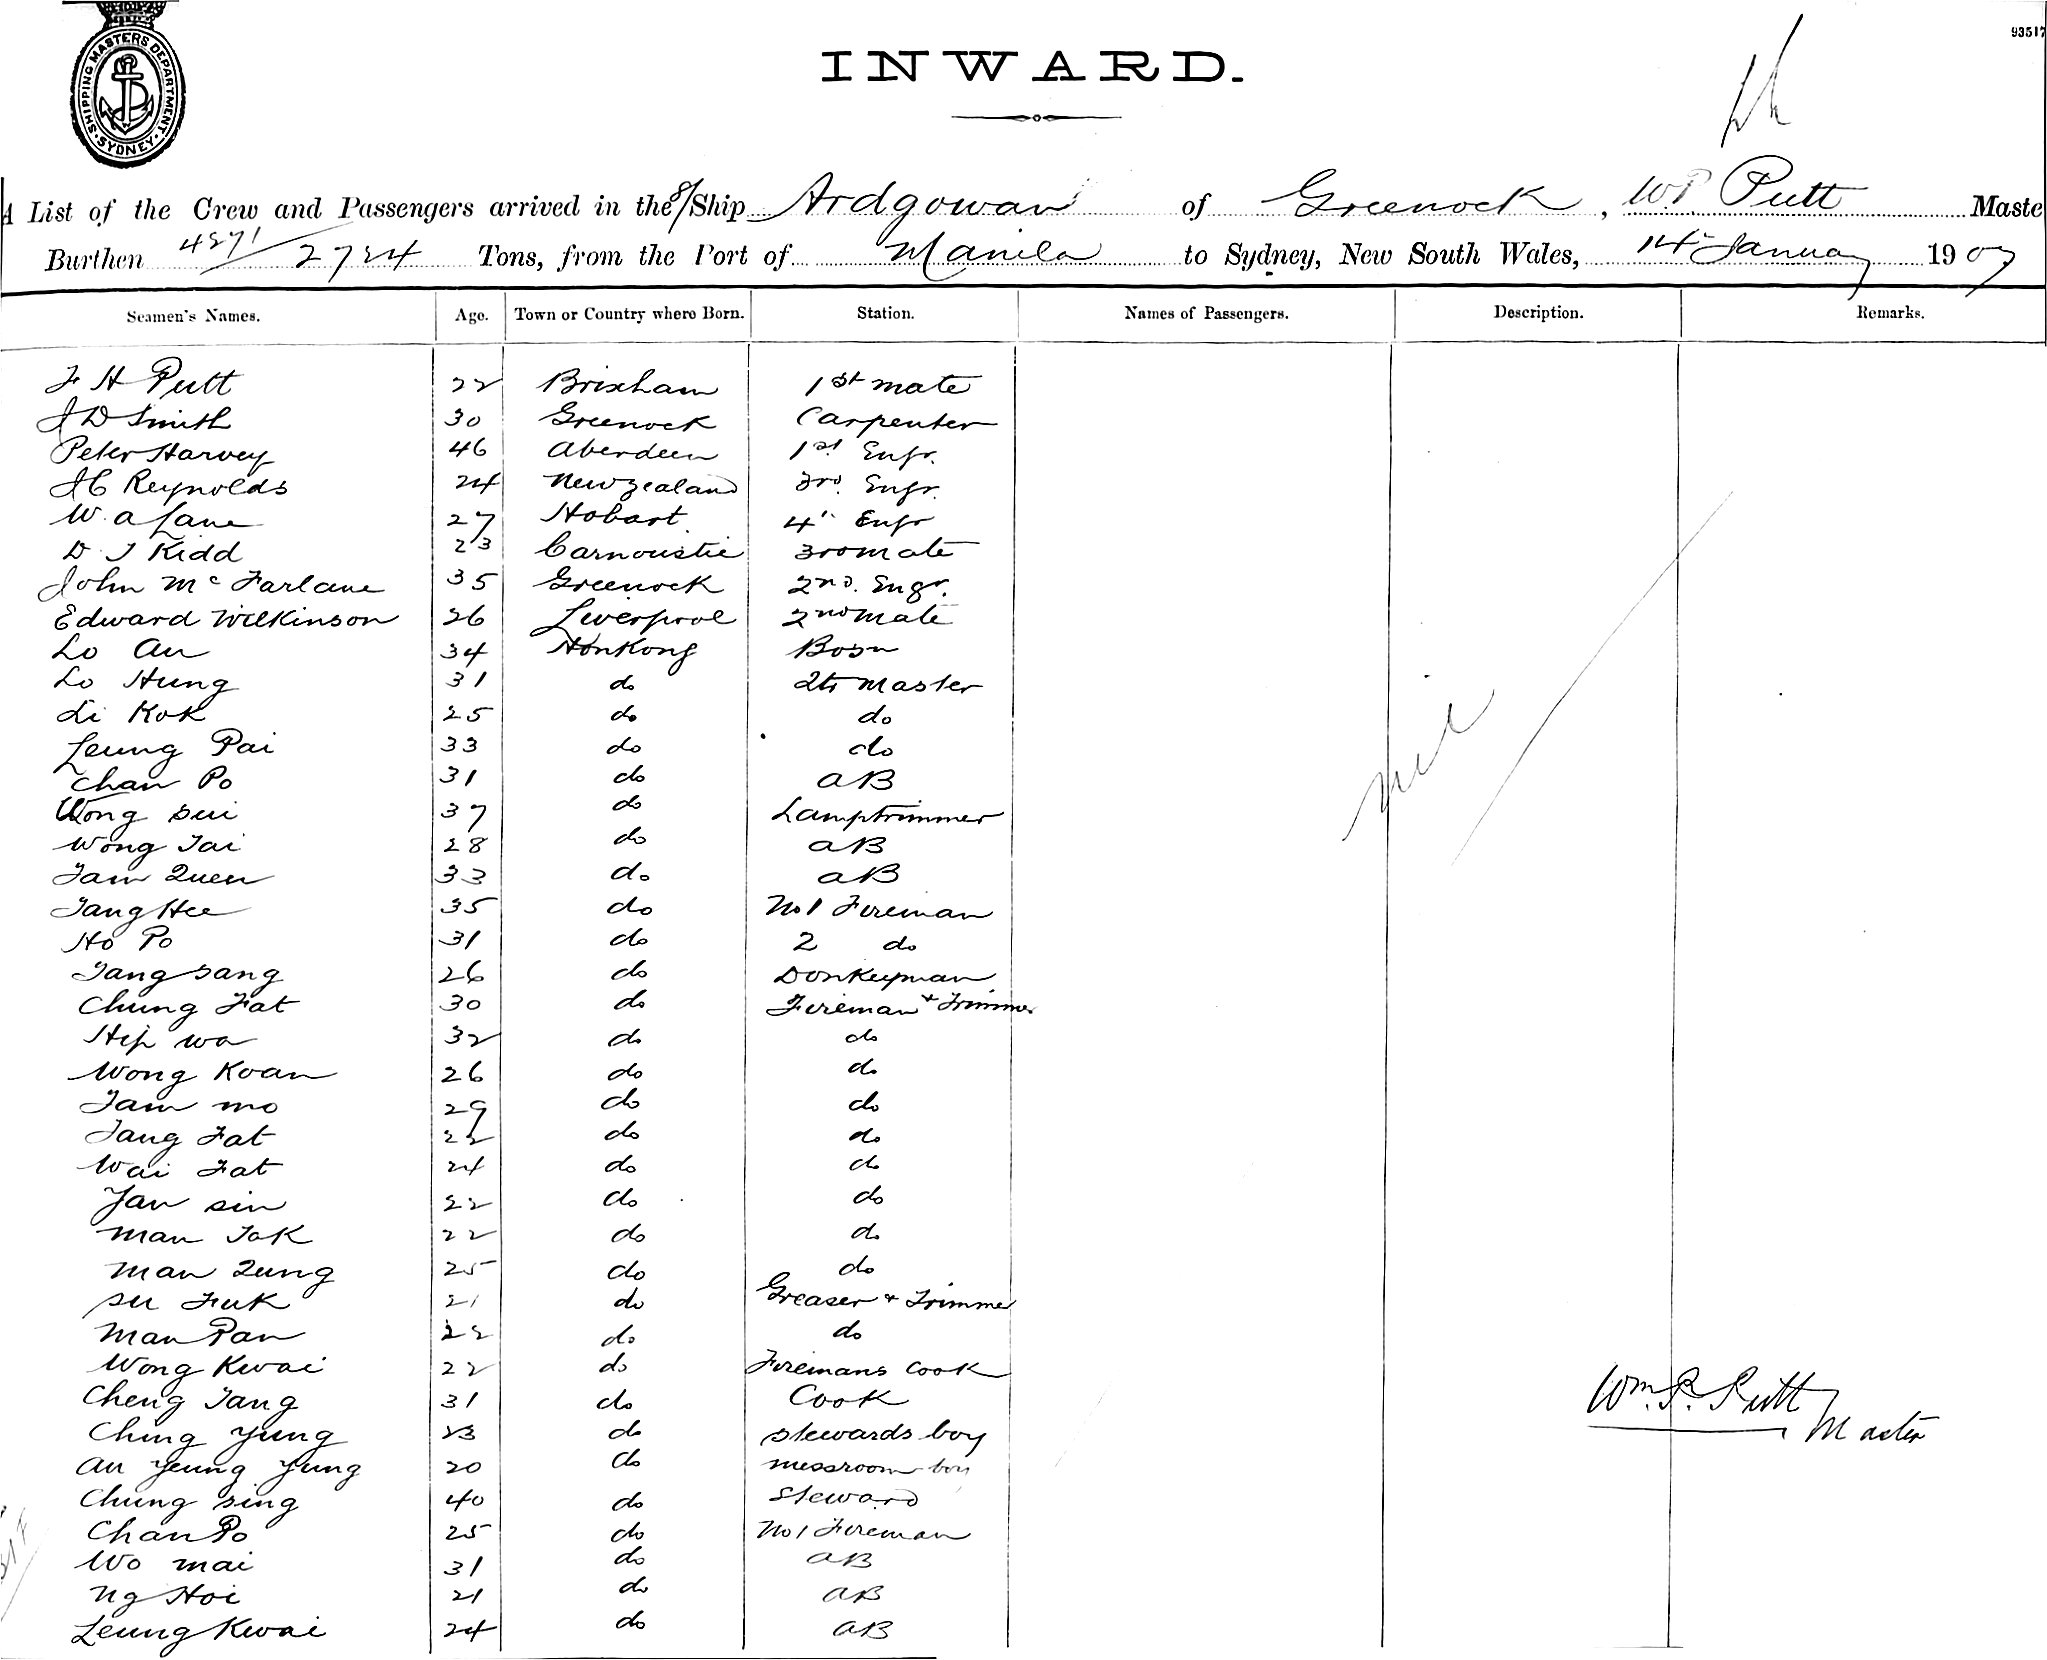 SHIPPING MASTERS DEPARTMENT · SYDNEY ·
93517
INWARD.
A List of the Crew and Passengers arrived in the S/Ship Ardgowan of Greenock, W P. Putt Maste
Burthen 4871/2724 Tons, from the Port of Manila to Sydney, New South Wales, 14 January 1907
Seamen's Names. Age. Town or Country where Born. Station. Names of Passengers. Description. Remarks.
F H Putt 22 Brixham 1st mate
J D Smith 30 Greenock Carpenter
Peter Harvey 46 Aberdeen 1st Engr.
J C Reynolds 24 Newzealand 3rd. Engr.
W. A Lane 27 Hobart 4th Engr
D. J Kidd 23 Carnoustie 3rd mate
John McFarlane 35 Greenock 2nd. Engr.
Edward Wilkinson 26 Liverpool 2nd mate
Lo Au 34 HonKong Bosn
Lo Hung 31 do 2tr Master
Li Kok 25 do do
Leung Pai 33 do do
Chan Po 31 do AB
Wong Sui 37 do Lamptrimmer
Wong Tai 28 do AB
Tam Quen 33 do AB
Tang Hee 35 do No 1 Fireman
Ho Po 31 do 2 do
Tang Sang 26 do Donkeyman
Chung Fat 30 do Fireman + Trimmer
Hip Wa 32 do do
Wong Koan 26 do do
Tam Mo 29 do do
Tang Fat 22 do do
Wai Fat 24 do do
Yau Sin 22 do do
Man Tok 22 do do
Man Qung 25 do do
Su Fuk 21 do Greaser + Trimmer
Man Pan 22 do do
Wong Kwai 22 do Firemans Cook
Cheng Tang 31 do Cook
Ching Yung 23 do stewards boy
Au Yeung Yung 20 do messroom boy
Chung Sing 40 do Steward
Chan Po 25 do No 1 Fireman
Wo Mai 31 do AB
Ng Hoi 21 do AB
Leung Kwai 24 do AB
nil
Wm. P. Putt
Master